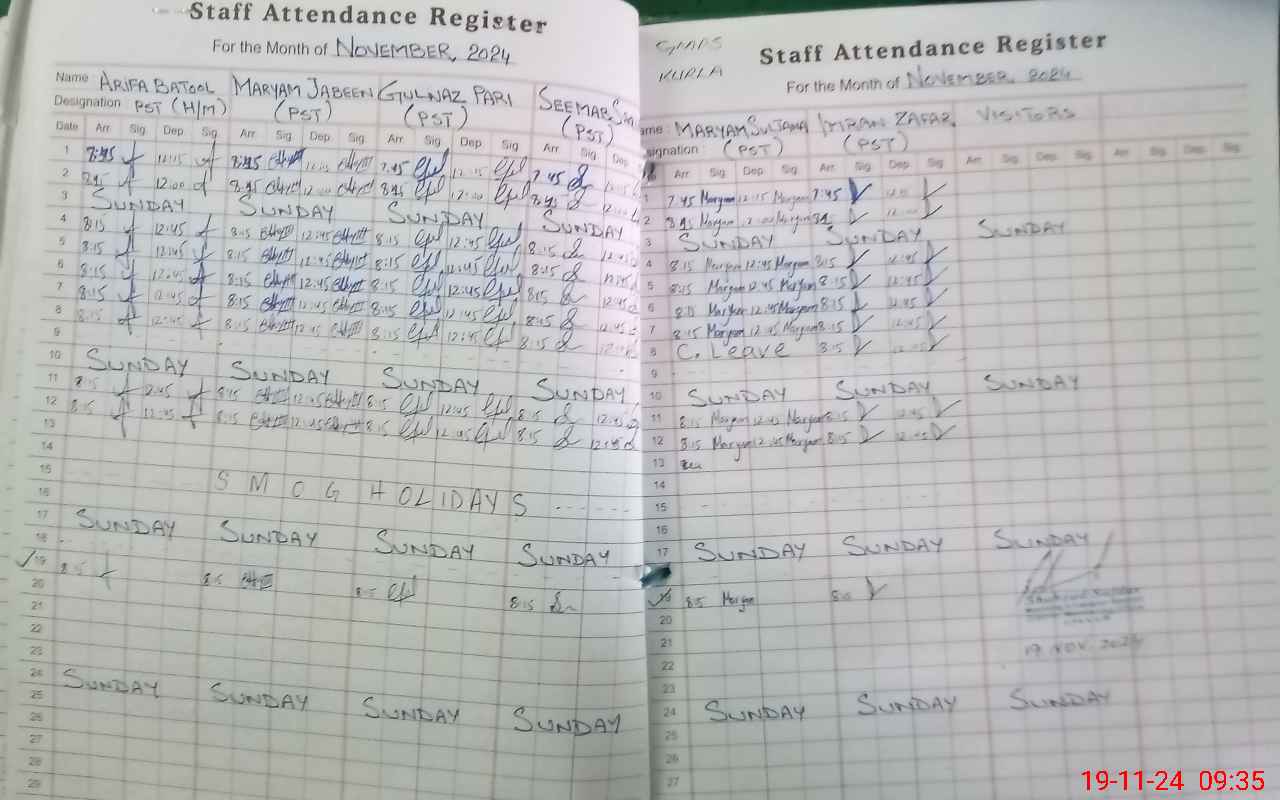 Staff Attendance Register
For the Month of NOVEMBER, 2024
Name: ARIFA BATOOL MARYAM JABEEN GULNAZ PARI SEEMAB
Designation PST (H/M) (PST) (PST) (PST)
Date Arr Sig Dep Sig Arr Sig Dep Sig Arr Sig Dep Sig Arr Sig Dep
1 7:45 12:15 7:45 7:45 12:15 7:45
2 8:45 12:00 8:45 12:00 8:45 12:00 8:45
3 SUNDAY SUNDAY SUNDAY SUNDAY
4 8:15 12:45 8:15 12:45 8:15 12:45 8:15 12:45
5 8:15 12:45 8:15 12:45 8:15 12:45 8:15 12:45
6 8:15 12:45 8:15 12:45 8:15 12:45 8:15 12:45
7 8:15 12:45 8:15 12:45 8:15 12:45 8:45 12:45
8 8:15 12:45 8:15 12:45 8:15 12:45 8:15
9
10 SUNDAY SUNDAY SUNDAY SUNDAY
11 8:15 12:45 8:15 12:45 8:15 12:45 8:15 12:45
12 8:15 12:45 8:15 12:45 8:15 12:45 8:15 12:45
13
14
15 SMOG HOLIDAYS
16
17 SUNDAY SUNDAY SUNDAY SUNDAY
18
19 8:15 8:15 8:15 8:15
20
21
22
23
24 SUNDAY SUNDAY SUNDAY SUNDAY
25
26
27
28
29
GMPS
KURLA
Staff Attendance Register
For the Month of NOVEMBER, 2024
ame: MARYAM SULTANA IMRAN ZAFAR VISITORS
signation: (PST) (PST)
Arr Sig Dep Sig Arr Sig Dep Sig Arr Sig Dep Sig Arr Sig Dep Sig
1 7:45 Maryam 12:15 Maryam 7:45
2 8:45 Maryam 12:00 Maryam
3 SUNDAY SUNDAY SUNDAY
4 8:15 Maryam 12:45 Maryam 8:15 12:45
5 8:15 Maryam 12:45 Maryam 8:15 12:45
6 8:15 Maryam 12:45 Maryam 8:15 12:45
7 8:15 Maryam 12:45 Maryam 8:15 12:45
8 C. Leave 8:15
9
10 SUNDAY SUNDAY SUNDAY
11 8:15 Maryam 12:45 Maryam 8:15 12:45
12 8:15 Maryam 12:45 Maryam 8:15 12:45
13
14
15
16
17 SUNDAY SUNDAY SUNDAY
8:15 Maryam 8:15
20
21 19 NOV 2024
22
23
24 SUNDAY SUNDAY SUNDAY
25
26
27
19-11-24 09:35